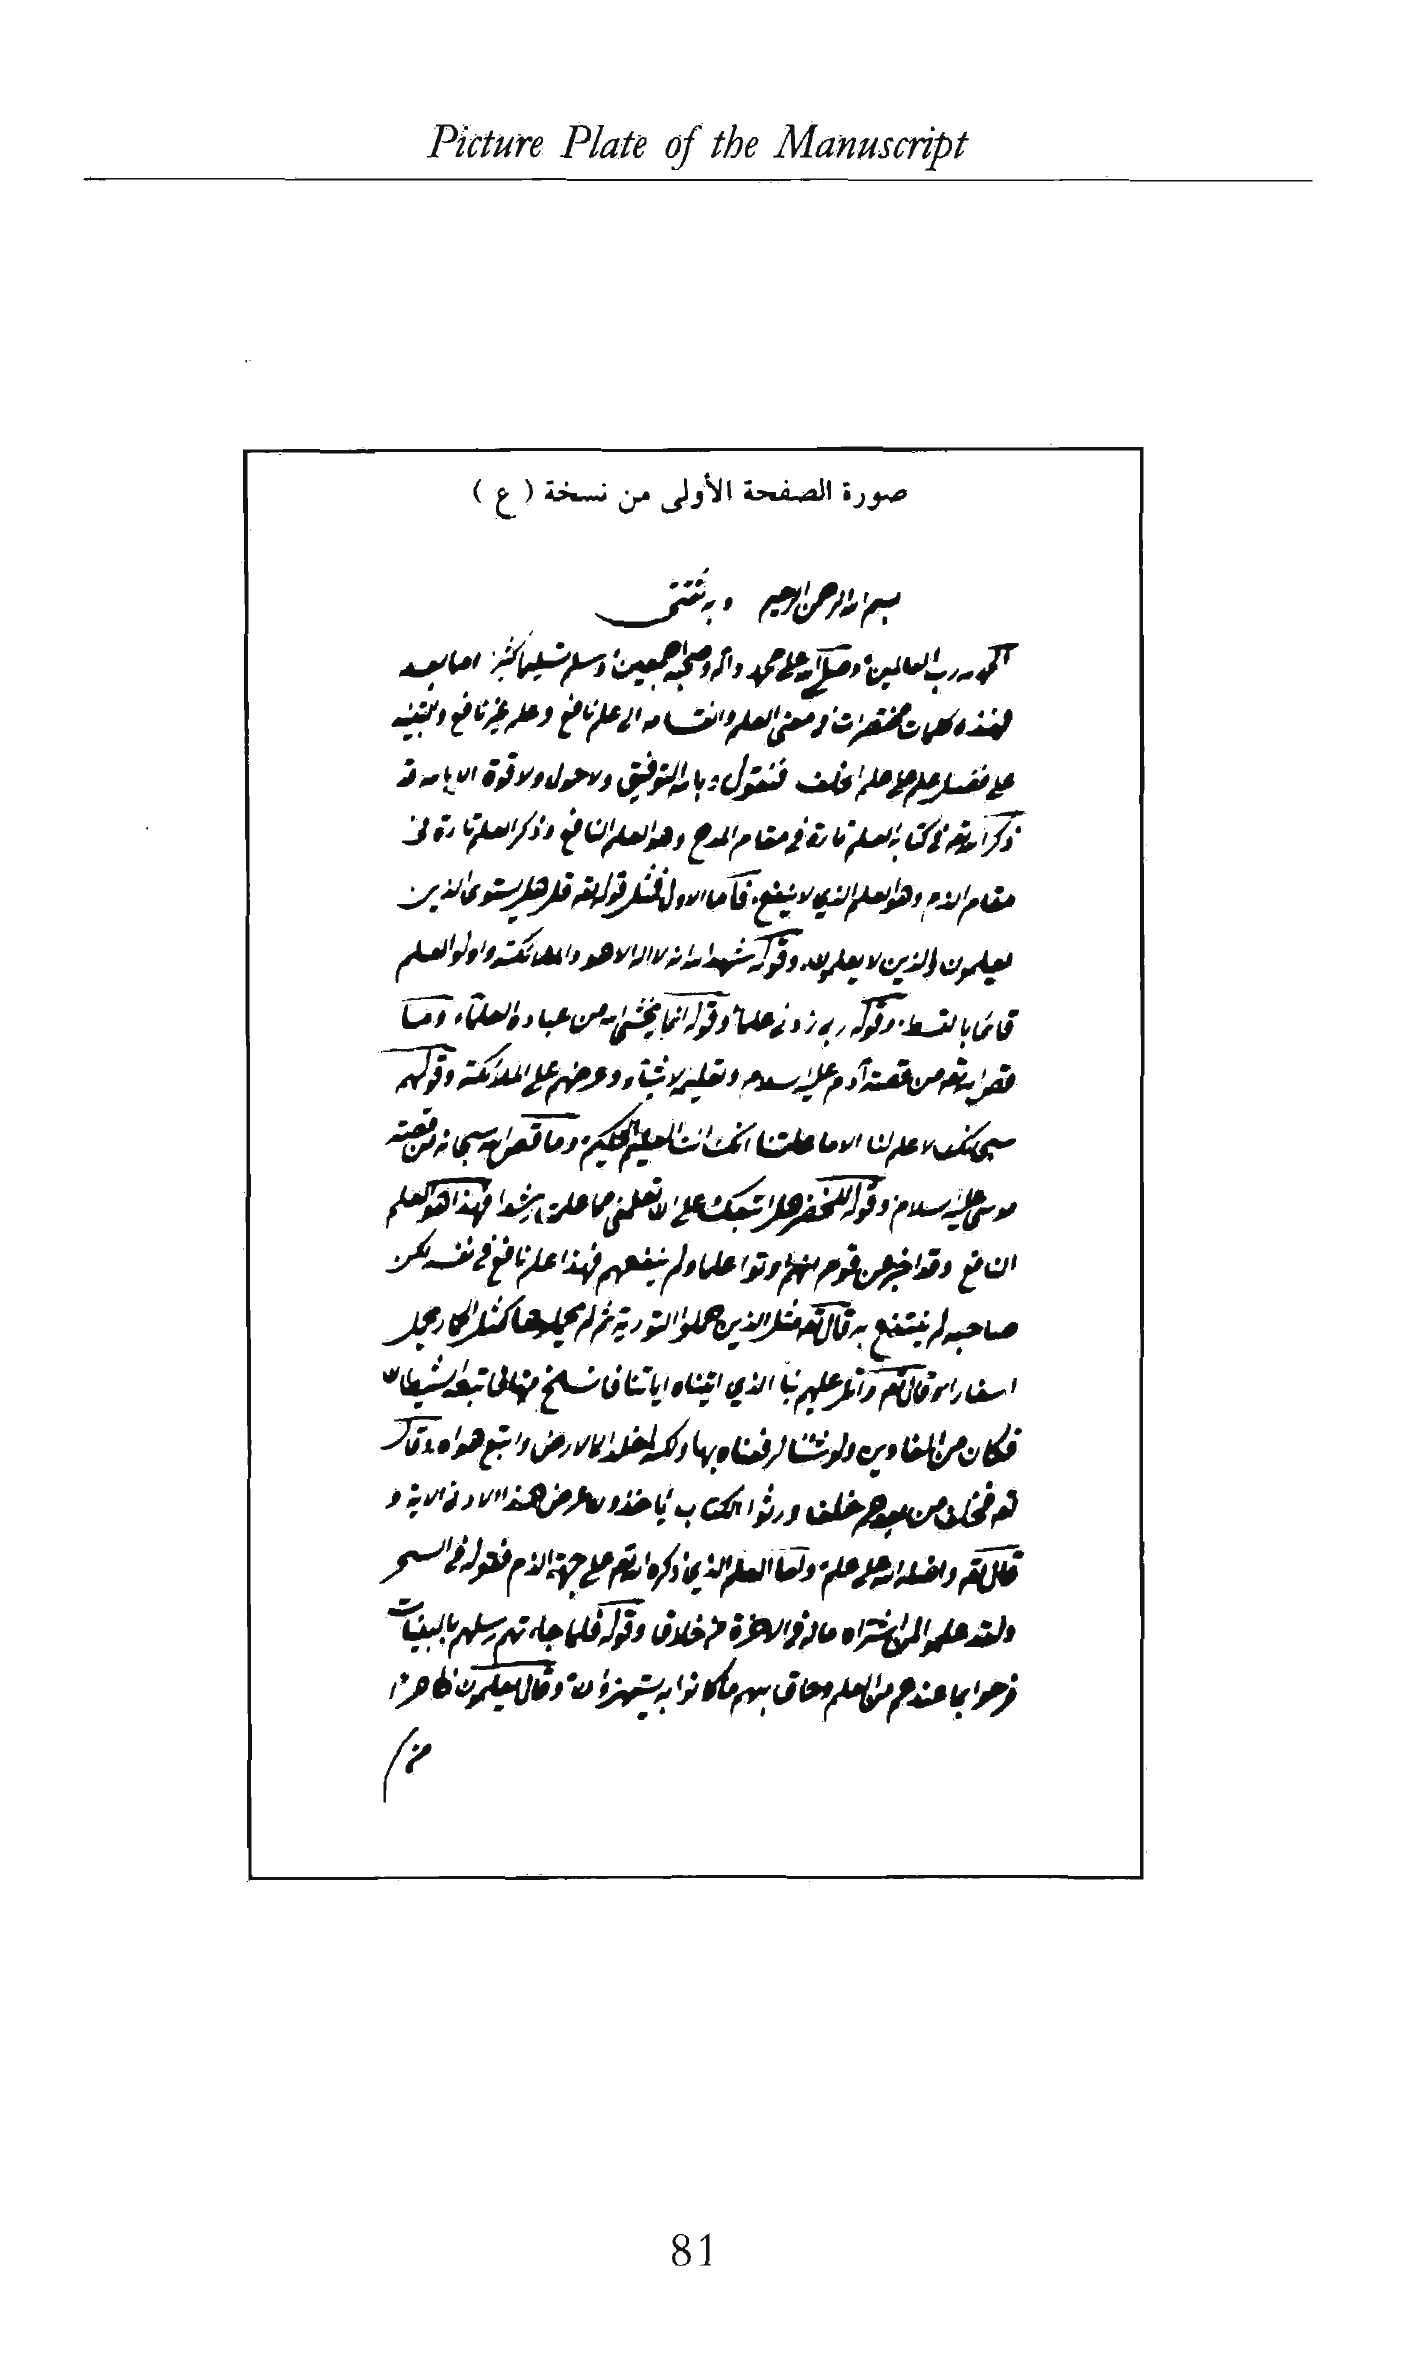 Picture Plate of the Manuscript
صورة الصفحة الأولى من نسخة ( ع )
بسم الله الرحمن الرحيم وبه ثقتي
الحمد لله رب العالمين وصلى الله على محمد واله وصحبه اجمعين وسلم تسليما كثيرا اما بعد
فهذه كلمات مختصرات في معنى العلم وانقسامه الى علم نافع وعلم غير نافع والتنبيه
على فضل علم السلف على علم الخلف فنقول وبالله التوفيق ولا حول ولا قوة الا بالله قد
ذكر الله تعه في كتابه العلم تارة في مقام المدح وهو العلم النافع وذكر العلم تارة في
مقام الذم وهو العلم الذي لا ينفع فاما الاول فمثل قوله تعه قل هل يستوي الذين
يعلمون والذين لا يعلمون وقوله شهد الله انه لا اله الا هو والملائكة واولوا العلم
قائما بالقسط وقوله رب زدني علما وقوله انما يخشى الله من عباده العلماء وما
قص الله تعه من قصة آدم عليه سلام وتعليمه الاشياء وعرضهم على الملائكة وقولهم
سبحانك لا علم لنا الا ما علمتنا انك انت العليم الحكيم وما قص الله سبحانه من قصة
موسى عليه سلام وقوله للخضر هل اتبعك على ان تعلمني مما علمت رشدا فهذا هو العلم
النافع وقد اخبر عن قوم انهم اوتوا علما ولم ينفعهم فهذا علم نافع في نفسه لكن
صاحبه لم ينتفع به قال تعه مثل الذين حملوا التورية ثم لم يحملوها كمثل الحمار يحمل
اسفارا وقال تعه واتل عليهم نبا الذي اتيناه اياتنا فانسلخ منها فاتبعه الشيطان
فكان من الغاوين ولو شئنا لرفعناه بها ولكنه اخلد الى الارض واتبع هواه وقال
تعه فخلف من بعدهم خلف ورثوا الكتاب ياخذون عرض هذا الادنى الاية و
قال تعه واضله الله على علم واما العلم الذي ذكره الله تعه على جهة الذم فقوله في السحر
ولقد علموا لمن اشتراه ماله في الاخرة من خلاق وقوله فلما جاءتهم رسلهم بالبينات
فرحوا بما عندهم من العلم وحاق بهم ما كانوا به يستهزؤن وقال يعلمون ظاهرا
من
81